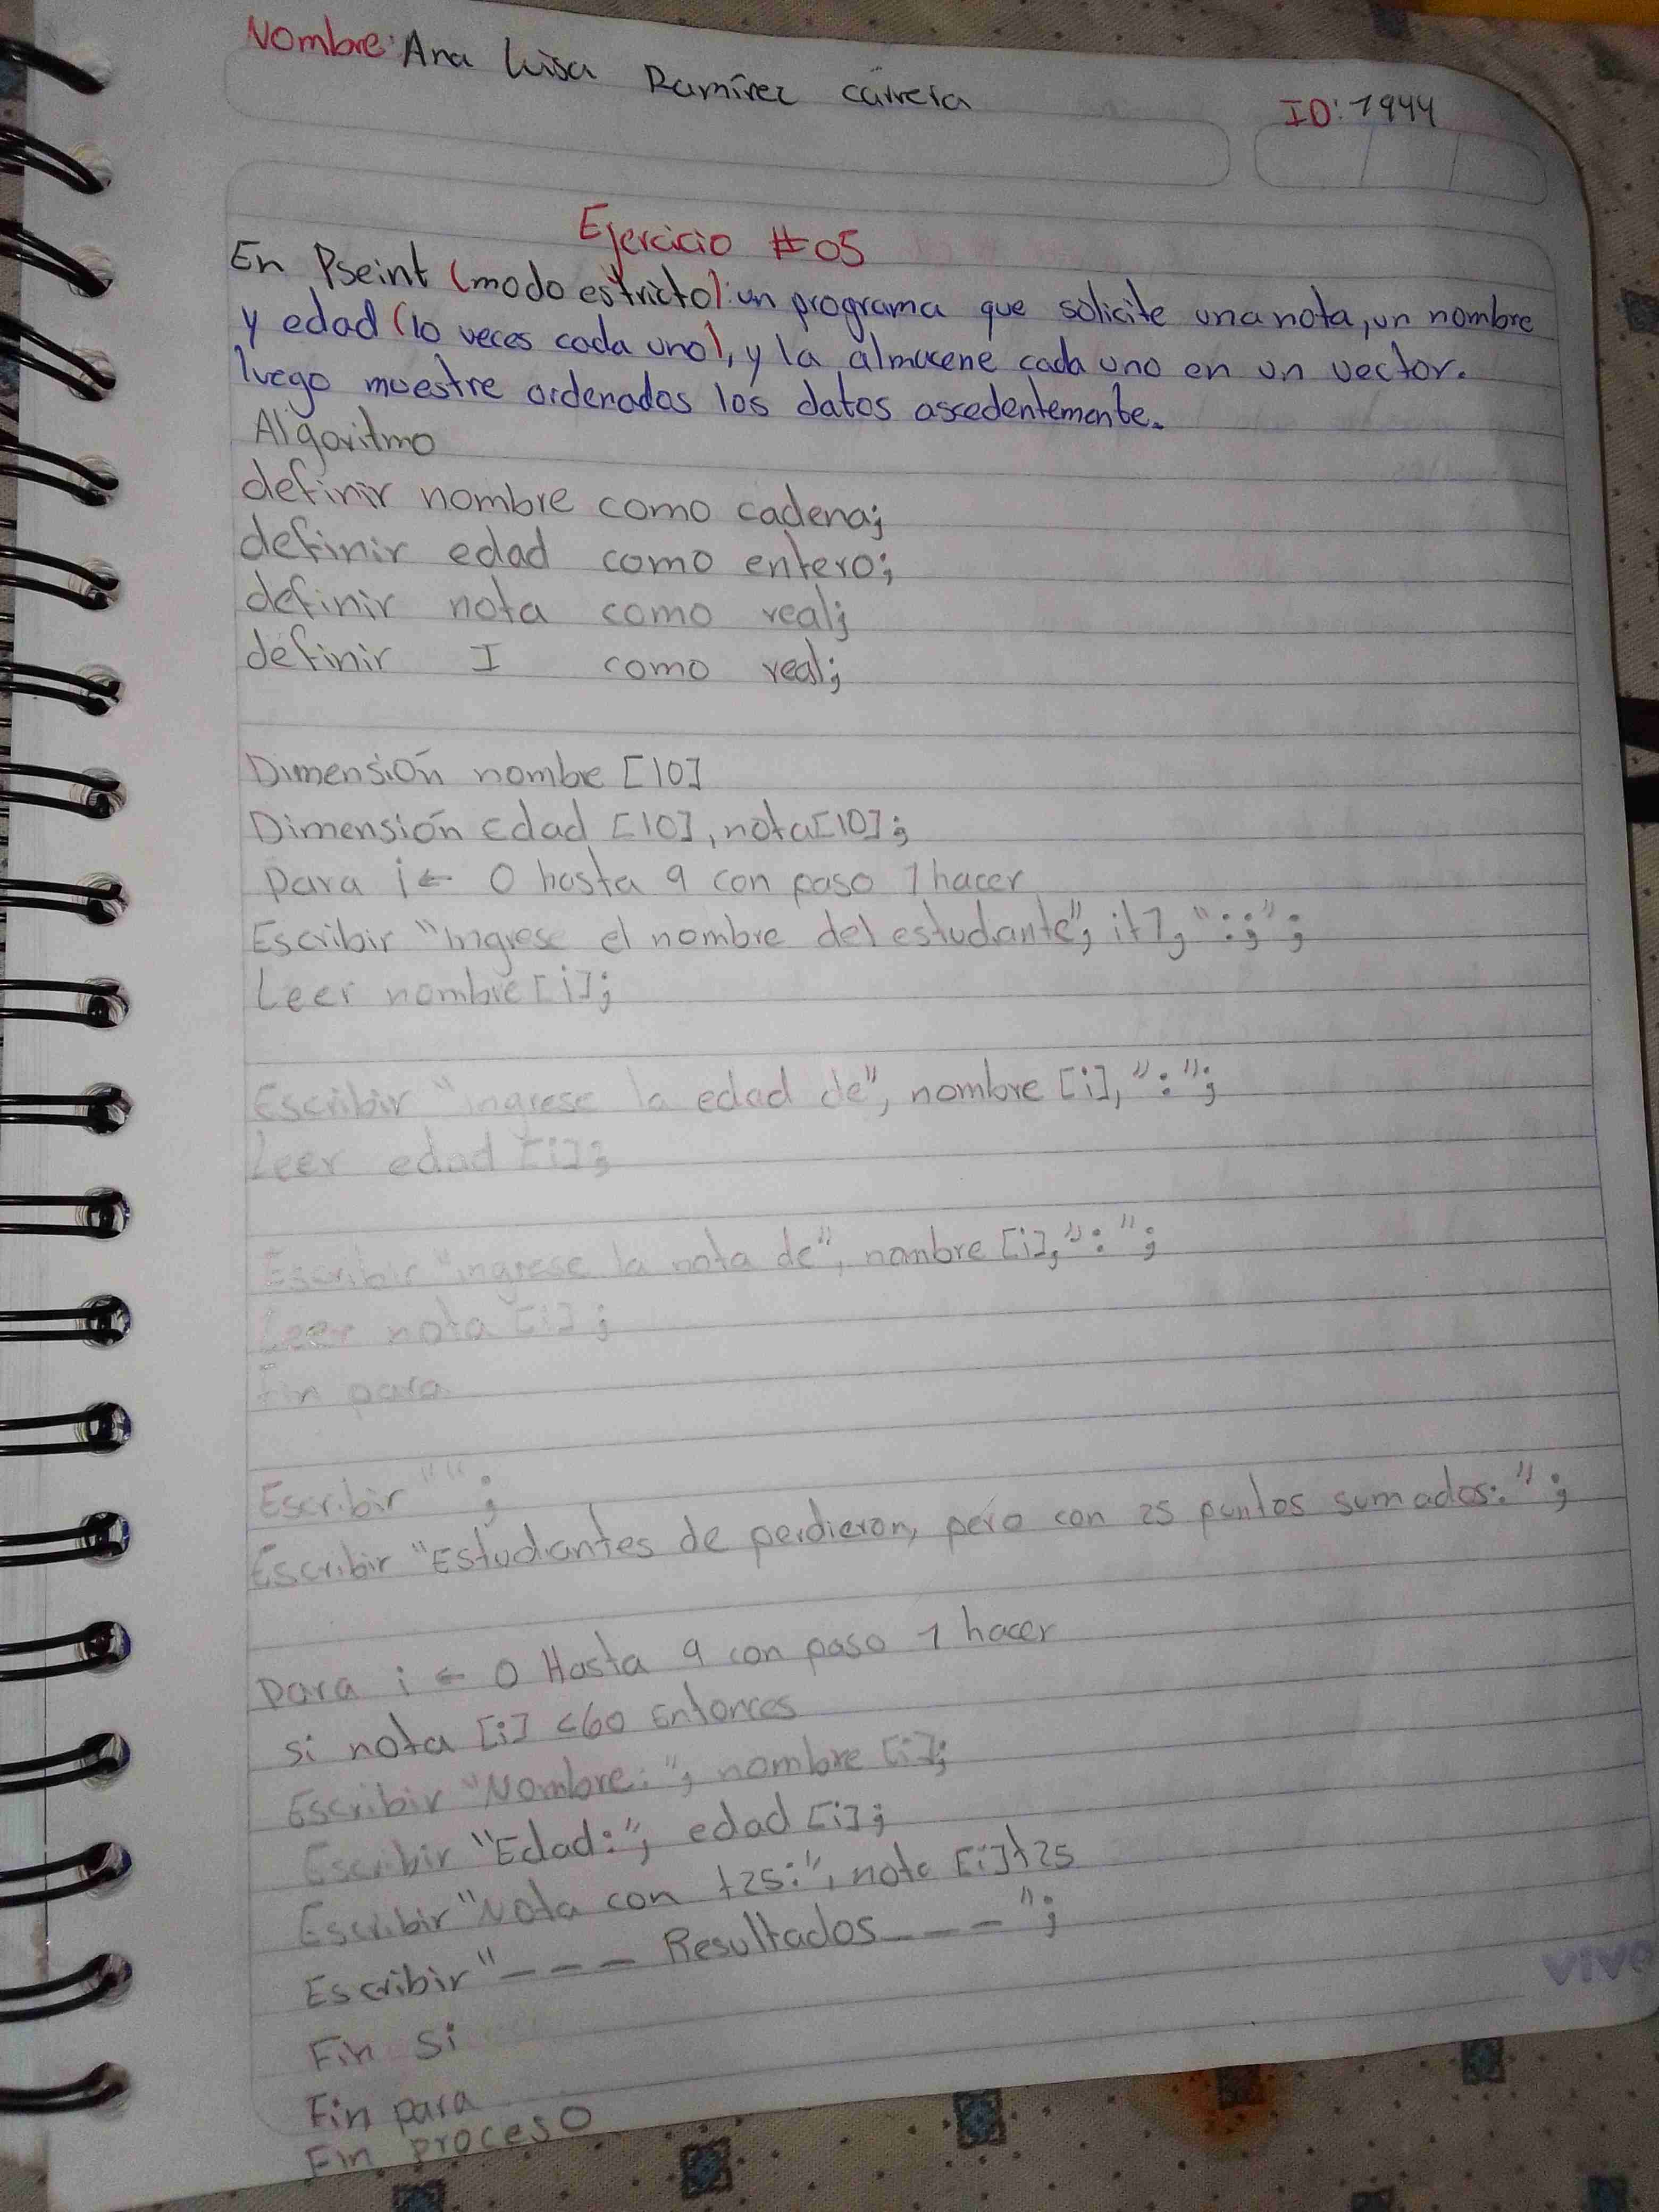 Nombre: Ana Luisa Ramírez carrera
ID: 1944
Ejercicio #05
En Pseint (modo estricto): un programa que solicite una nota, un nombre
y edad (10 veces cada uno), y la almacene cada uno en un vector.
luego muestre ordenados los datos ascedentemente.
Algoritmo
definir nombre como cadena;
definir edad como entero;
definir nota como real;
definir I como real;
Dimensión nombre [10]
Dimensión Edad [10], nota[10];
para i← 0 hasta 9 con paso 1 hacer
Escribir "ingrese el nombre del estudiante"; i+1; ":;";
Leer nombre [i];
Escribir "ingrese la edad de", nombre [i], ":";
Leer edad [i];
Escribir "ingrese la nota de", nombre [i], ":";
Leer nota [i];
Fin para
Escribir "";
Escribir "Estudiantes de perdieron, pero con 25 puntos sumados:";
Para i ← 0 Hasta 9 con paso 1 hacer
si nota [i] <60 Entonces
Escribir "Nombre:"; nombre [i];
Escribir "Edad:"; edad [i];
Escribir "Nota con +25:", nota [i]+25
Escribir "--- Resultados ---";
Fin si
Fin para
Fin proceso
vivo